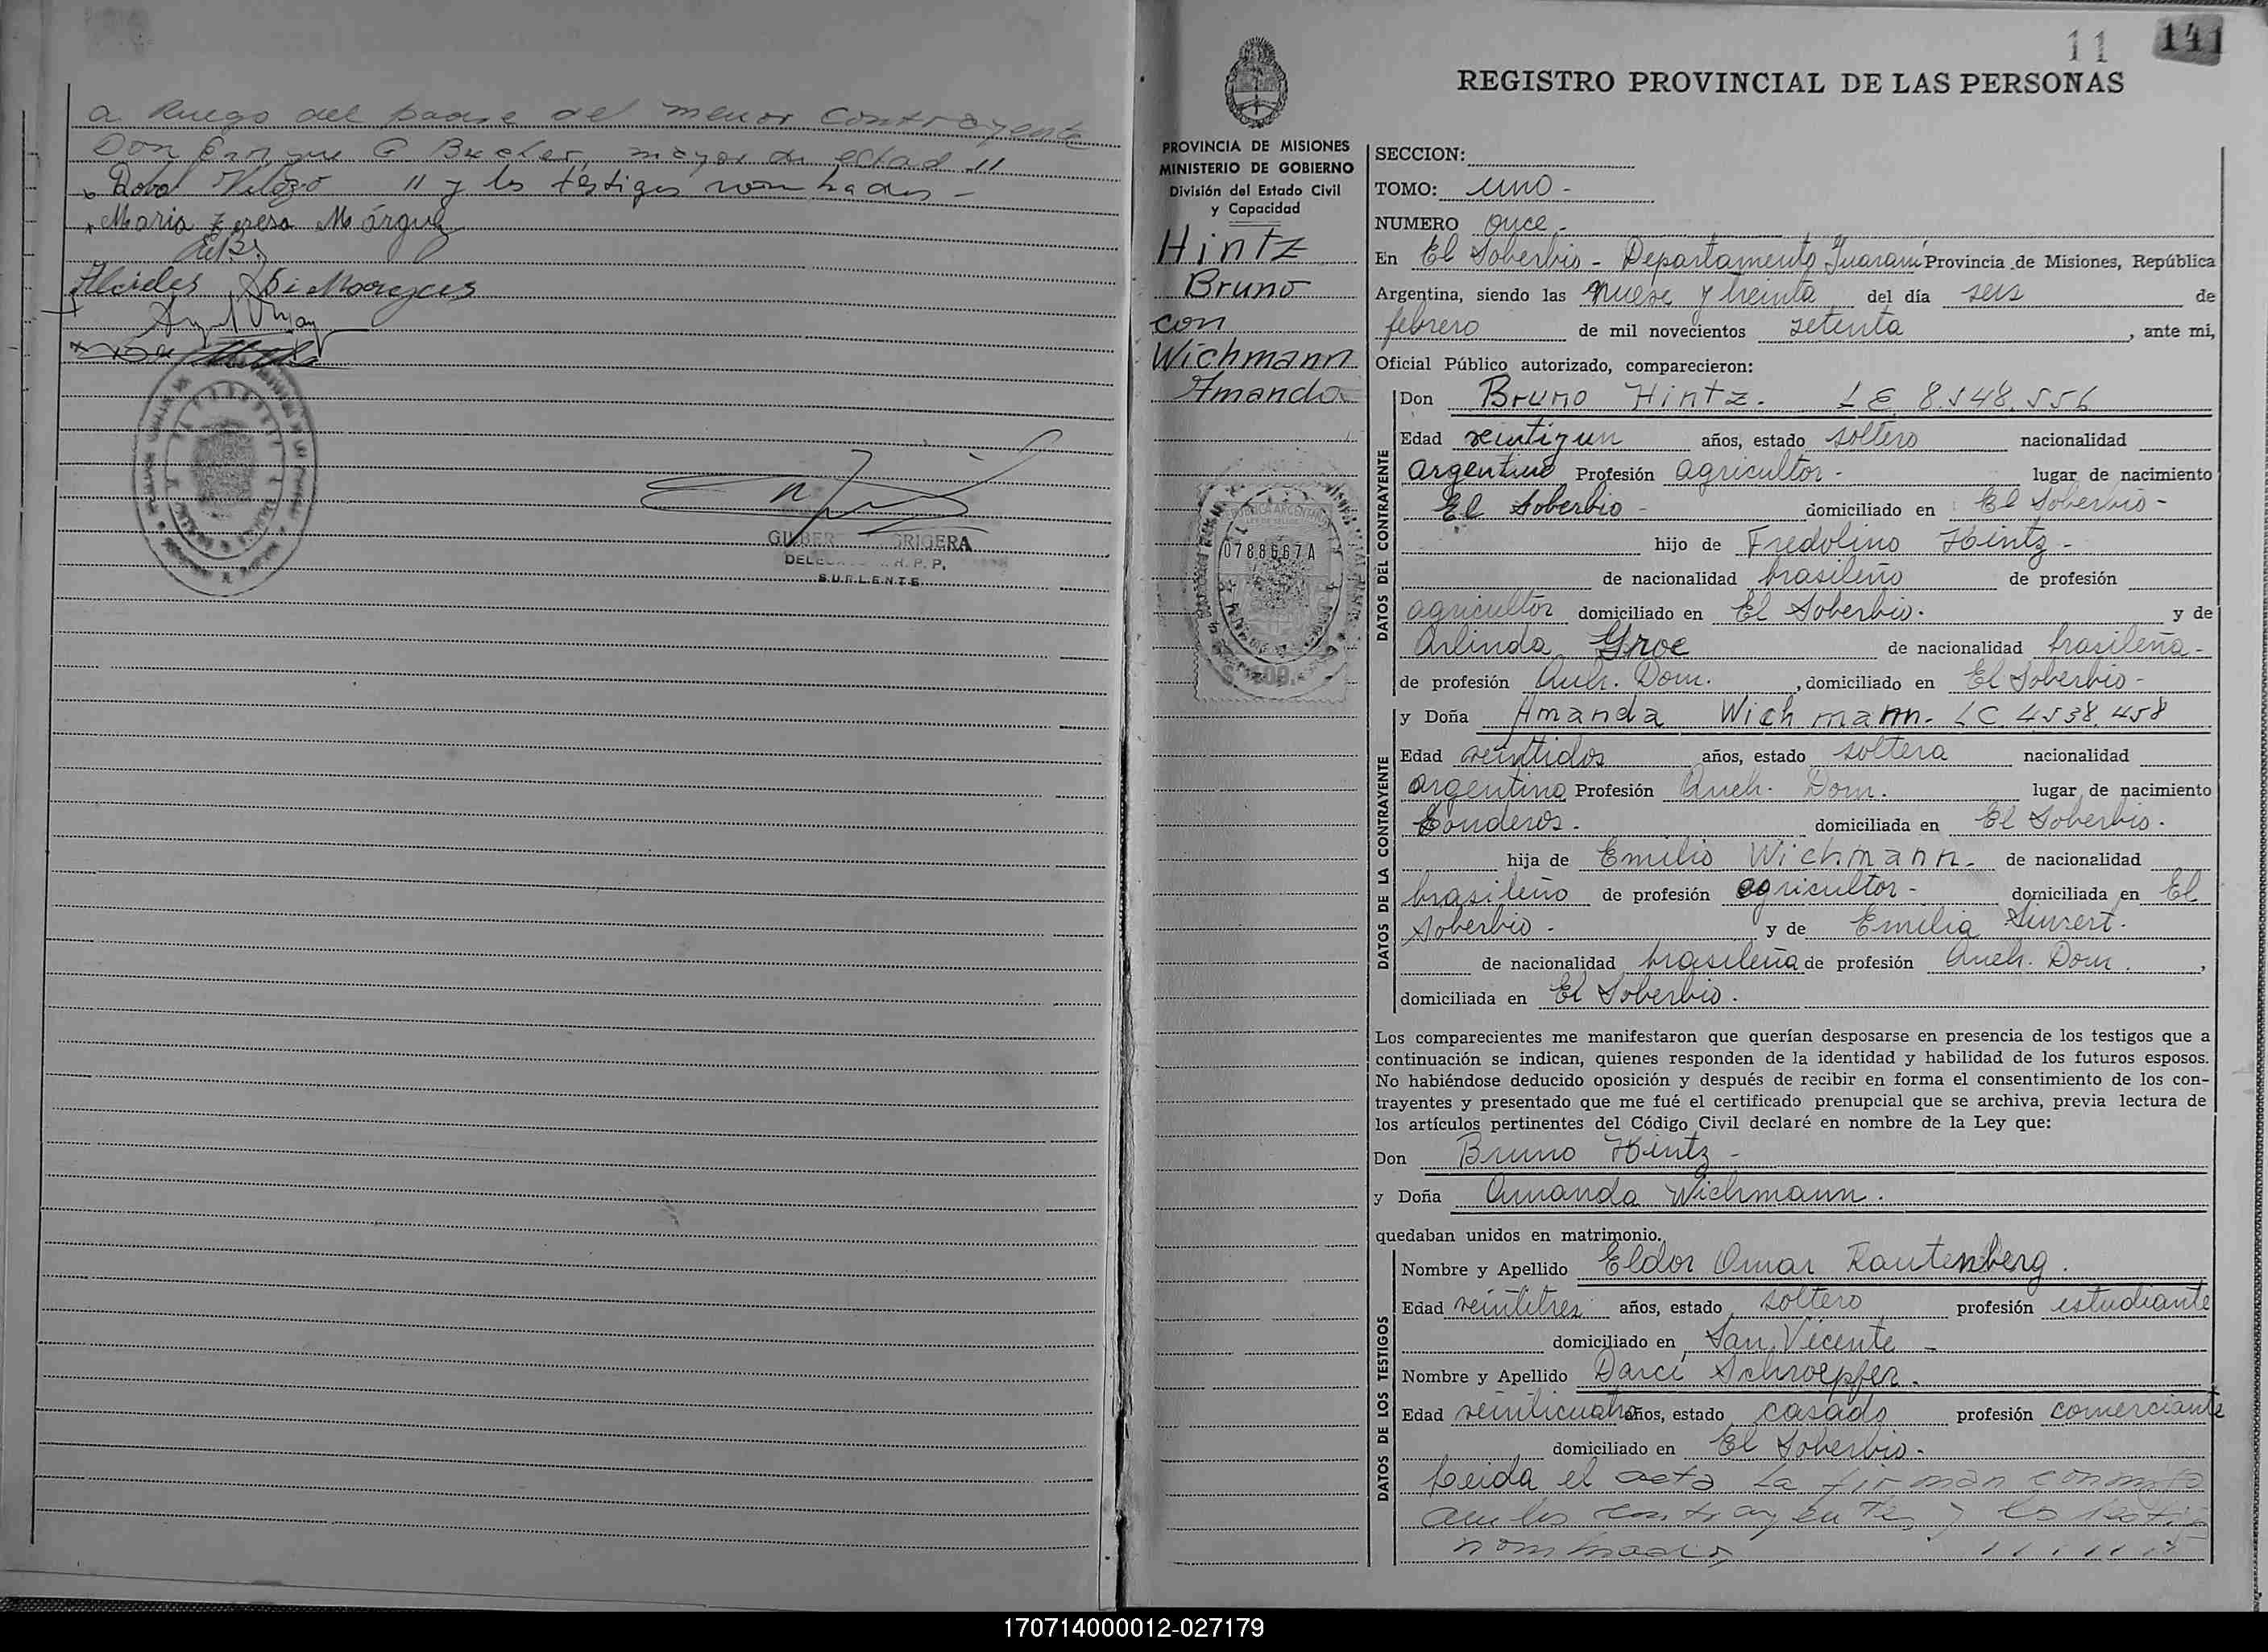 a Ruego del padre del menor contrayente
Don Enrique G Bucler, mayor de edad //
Velozo // y los testigos nombrados -
Maria Teresa Márquez
Alcides
GILBER GRIGERA
SUPLENTE
11 141
REGISTRO PROVINCIAL DE LAS PERSONAS
PROVINCIA DE MISIONES
MINISTERIO DE GOBIERNO
División del Estado Civil
y Capacidad
Hintz
Bruno
con
Wichmann
Amanda
0788667A
SECCION:
TOMO: uno -
NUMERO once -
En El Soberbio - Departamento Guaraní Provincia de Misiones, República
Argentina, siendo las nueve y treinta del día seis de
febrero de mil novecientos setenta, ante mi,
Oficial Público autorizado, comparecieron:
DATOS DEL CONTRAYENTE
Don Bruno Hintz. LE 8.548.556
Edad veintiyun años, estado soltero nacionalidad
argentino Profesión agricultor - lugar de nacimiento
El Soberbio - domiciliado en El Soberbio -
hijo de Fredolino Hintz -
de nacionalidad brasileño de profesión
agricultor domiciliado en El Soberbio. y de
Arlinda Groe de nacionalidad brasileña -
de profesión Queh. Dom. , domiciliado en El Soberbio -
DATOS DE LA CONTRAYENTE
y Doña Amanda Wichmann. LC 4538.458
Edad veintidos años, estado soltera nacionalidad
argentina Profesión Queh. Dom. lugar de nacimiento
domiciliada en El Soberbio.
hija de Emilio Wichmann - de nacionalidad
brasileño de profesión agricultor - domiciliada en El
Soberbio - y de Emilia
de nacionalidad brasileña de profesión Queh. Dom. ,
domiciliada en El Soberbio.
Los comparecientes me manifestaron que querían desposarse en presencia de los testigos que a
continuación se indican, quienes responden de la identidad y habilidad de los futuros esposos.
No habiéndose deducido oposición y después de recibir en forma el consentimiento de los con-
trayentes y presentado que me fué el certificado prenupcial que se archiva, previa lectura de
los artículos pertinentes del Código Civil declaré en nombre de la Ley que:
Don Bruno Hintz -
y Doña Amanda Wichmann.
quedaban unidos en matrimonio.
DATOS DE LOS TESTIGOS
Nombre y Apellido Eldor Omar Rautenberg.
Edad veintitres años, estado soltero profesión estudiante
domiciliado en San Vicente -
Nombre y Apellido Darci Schroepfer.
Edad veinticuatro años, estado casado profesión comerciante
domiciliado en El Soberbio -
Leida el acta La firman conmigo
ambos contrayentes y los testigos
nombrados
170714000012-027179